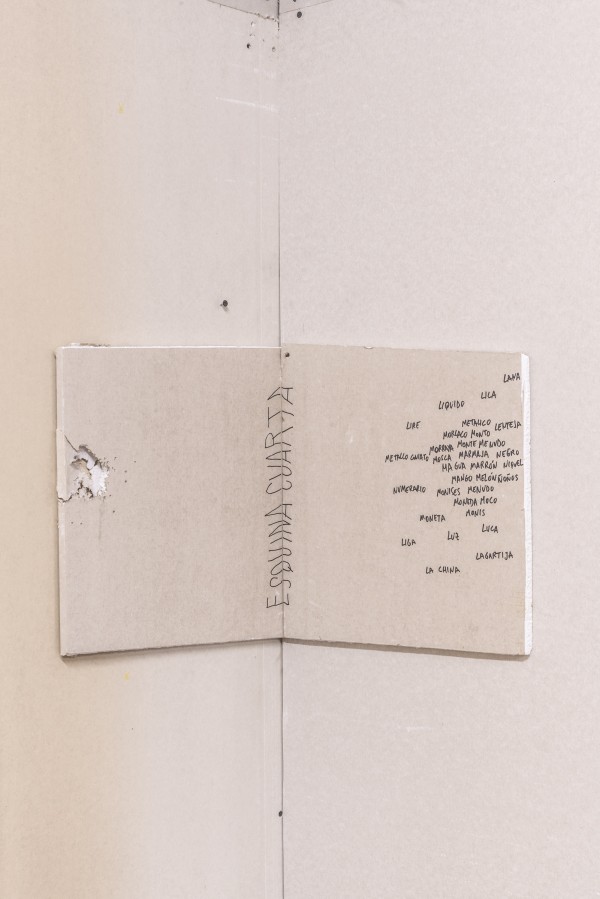 ESQUINA CUARTA
LANA
LILA
LIQUIDO
LIRE METALICO LENTEJA
MORLACO MONTO
MORRALLA MONTE MENUDO
METALLO CUÑATO MOSCA MARMAJA NEGRO
MAGUA MARRÓN NIQUEL
MANGO MELÓN ÑOÑOS
NUMERARIO MONISES MENUDO
MONEDA MOCO
MONETA MONIS
LUCA
LUZ
LIGA
LAGARTIJA
LA CHINA